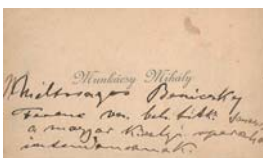 Munkácsy Mihály
Méltóságos Beniczky
Ferenc von belső titk.
a magyar királyi opera
intendánsának.